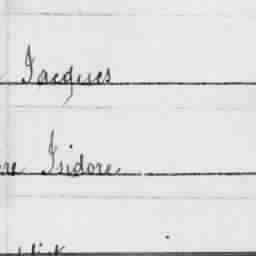 Jacques
re Isidore